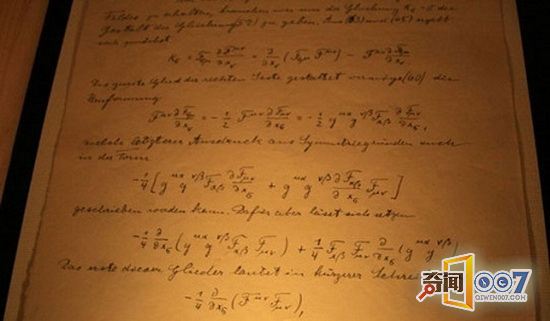 Feldes zu erhalten, brauchen wir nur die Gleichung
Gestalt der Gleichung zu geben. Aus (63) und (65) ergibt
sich zunächst
K_σ = F_σμ ∂F^μν/∂x_ν = ∂/∂x_ν (F_σμ F^μν) − F^μν ∂F_σμ/∂x_ν
Das zweite Glied der rechten Seite gestattet vermöge (60) die
Umformung
F^μν ∂F_σμ/∂x_ν = −1/2 F^μν ∂F_μν/∂x_σ = −1/2 g^μα g^νβ F_αβ ∂F_μν/∂x_σ,
welch letzterer Ausdruck aus Symmetriegründen auch
in der Form
−1/4 [g^μα g^νβ F_αβ ∂F_μν/∂x_σ + g^μα g^νβ ∂F_αβ/∂x_σ F_μν]
geschrieben werden kann. Dafür aber lässt sich setzen
−1/4 ∂/∂x_σ (g^μα g^νβ F_αβ F_μν) + 1/4 F_αβ F_μν ∂/∂x_σ (g^μα g^νβ)
Das erste dieser Glieder lautet in kürzerer Schrei
−1/4 ∂/∂x_σ (F^μν F_μν),
奇闻007
QIWEN007.COM